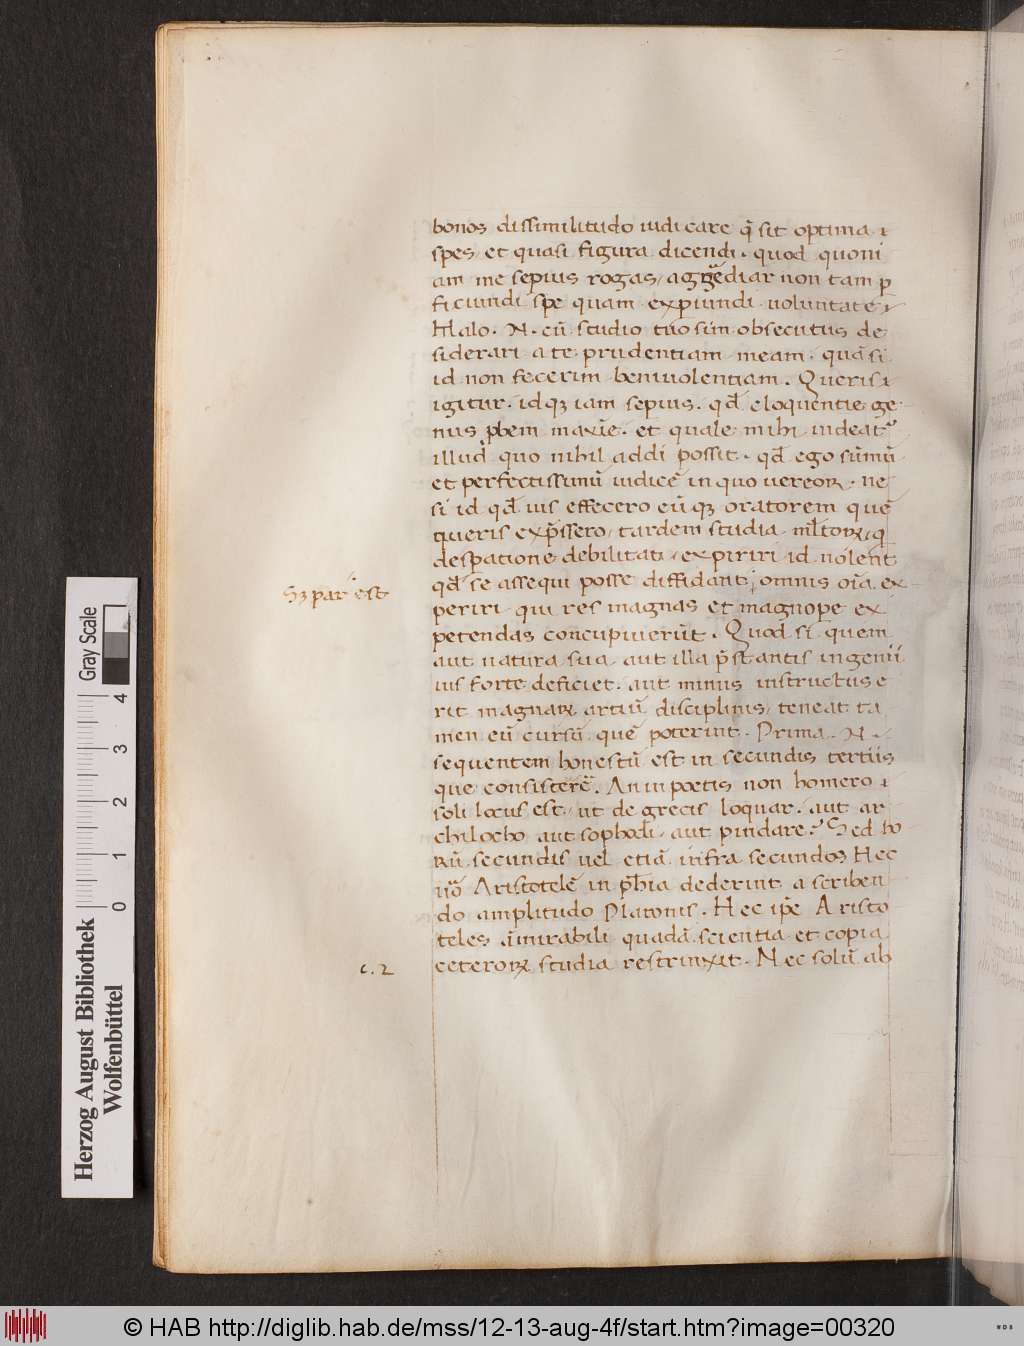 bonos dissimilitudo iudicare q̄ sit optima ɩ
spes, et quasi figura dicendi. quod quoni
am me sepius rogas, aggrediar non tam p
ficiundi spe quam experiundi uoluntate,
Malo. N. cū studio tuo sim obsecutus de
siderari a te prudentiam meam. quā si
id non fecerim beniuolentiam. Queris ɩ
igitur. idqꝫ iam sepius. qđ eloquentie ge
nus pbem maxīe. et quale mihi uideat᷑
illud quo nihil addi possit. qđ ego sūmū
et perfectissimū iudicē in quo uereoꝝ. ne
si id qđ uis effecero eūqꝫ oratorem quē
queris expīssero, tardem studia ml̄toꝝ, q
despatione debilitati, expiriri id nolent
qđ se assequi posse diffidant; omnis oīa ex
Sꝫ par est
periri qui res magnas et magnope ex
petendas concupiuierūt. Quod si quem
aut natura sua aut illa p̄stantis ingenii
uis forte deficiet. aut minus instructus e
rit magnaꝝ artiū disciplinis, teneat ta
men eū cursū quē poterint. Prima. N.
sequentem honestū est in secundis tertiis
que consistere. An in poetis non homero ɩ
soli locus est, ut de grecis loquar. aut ar
chilocho aut sophocli, aut pindare? Sed ho
rū secundis uel etiā infra secundos Hec
uō Aristotelē in ph̄ia dederint a scriben
do amplitudo Platonis. Hec ip̄e Aristo
teles āmirabili quadā scientia et copia
ceteroꝝ studia restrinxit. Nec solū ab
c. 2
Gray Scale
4 3 2 1 0
Herzog August Bibliothek
Wolfenbüttel
© HAB http://diglib.hab.de/mss/12-13-aug-4f/start.htm?image=00320